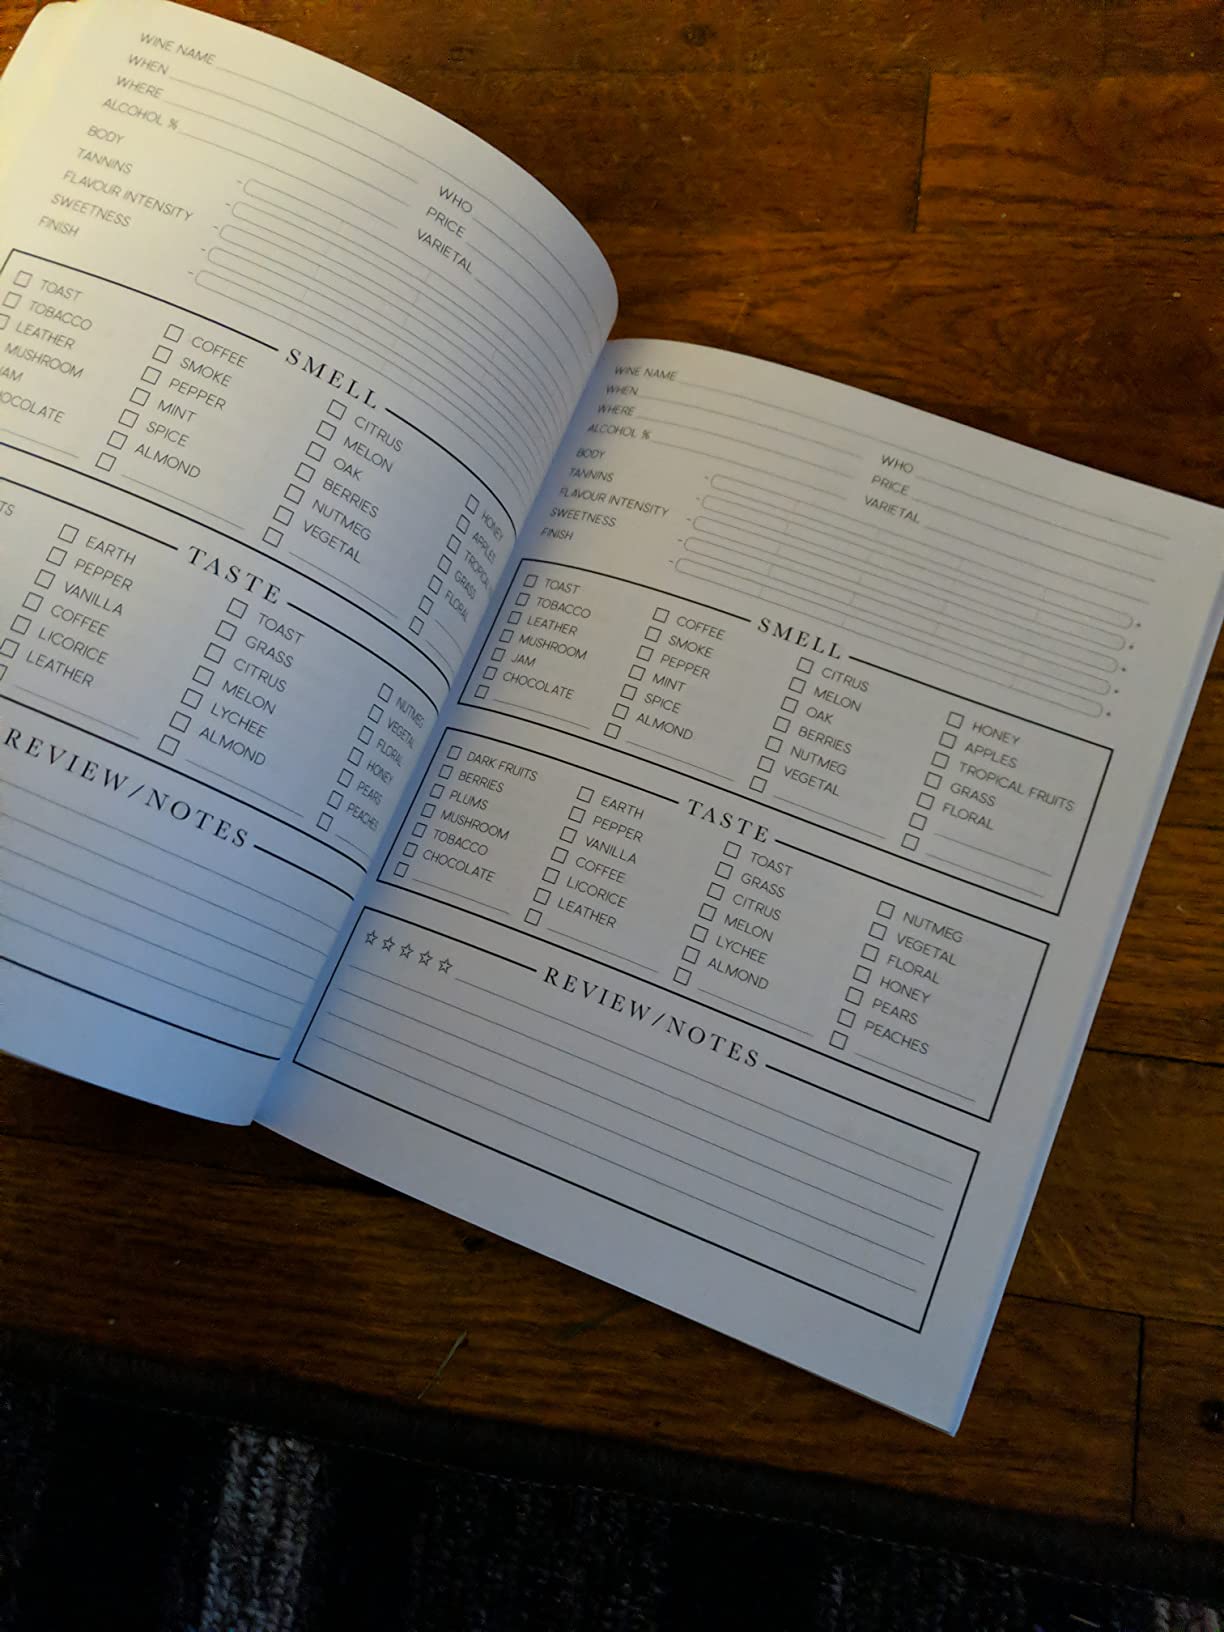 WINE NAME
WHEN
WHERE
ALCOHOL %
WHO
PRICE
VARIETAL
BODY
TANNINS
FLAVOUR INTENSITY
SWEETNESS
FINISH
SMELL
TOAST
TOBACCO
LEATHER
MUSHROOM
COFFEE
SMOKE
PEPPER
MINT
SPICE
ALMOND
CITRUS
MELON
OAK
BERRIES
NUTMEG
VEGETAL
HONEY
APPLES
GRASS
FLORAL
TASTE
EARTH
PEPPER
VANILLA
COFFEE
LICORICE
LEATHER
TOAST
GRASS
CITRUS
MELON
LYCHEE
ALMOND
NUTMEG
VEGETAL
FLORAL
HONEY
PEARS
PEACHES
REVIEW/NOTES
WINE NAME
WHEN
WHERE
ALCOHOL %
WHO
PRICE
VARIETAL
BODY
TANNINS
FLAVOUR INTENSITY
SWEETNESS
FINISH
SMELL
TOAST
TOBACCO
LEATHER
MUSHROOM
JAM
CHOCOLATE
COFFEE
SMOKE
PEPPER
MINT
SPICE
ALMOND
CITRUS
MELON
OAK
BERRIES
NUTMEG
VEGETAL
HONEY
APPLES
TROPICAL FRUITS
GRASS
FLORAL
TASTE
DARK FRUITS
BERRIES
PLUMS
MUSHROOM
TOBACCO
CHOCOLATE
EARTH
PEPPER
VANILLA
COFFEE
LICORICE
LEATHER
TOAST
GRASS
CITRUS
MELON
LYCHEE
ALMOND
NUTMEG
VEGETAL
FLORAL
HONEY
PEARS
PEACHES
REVIEW/NOTES